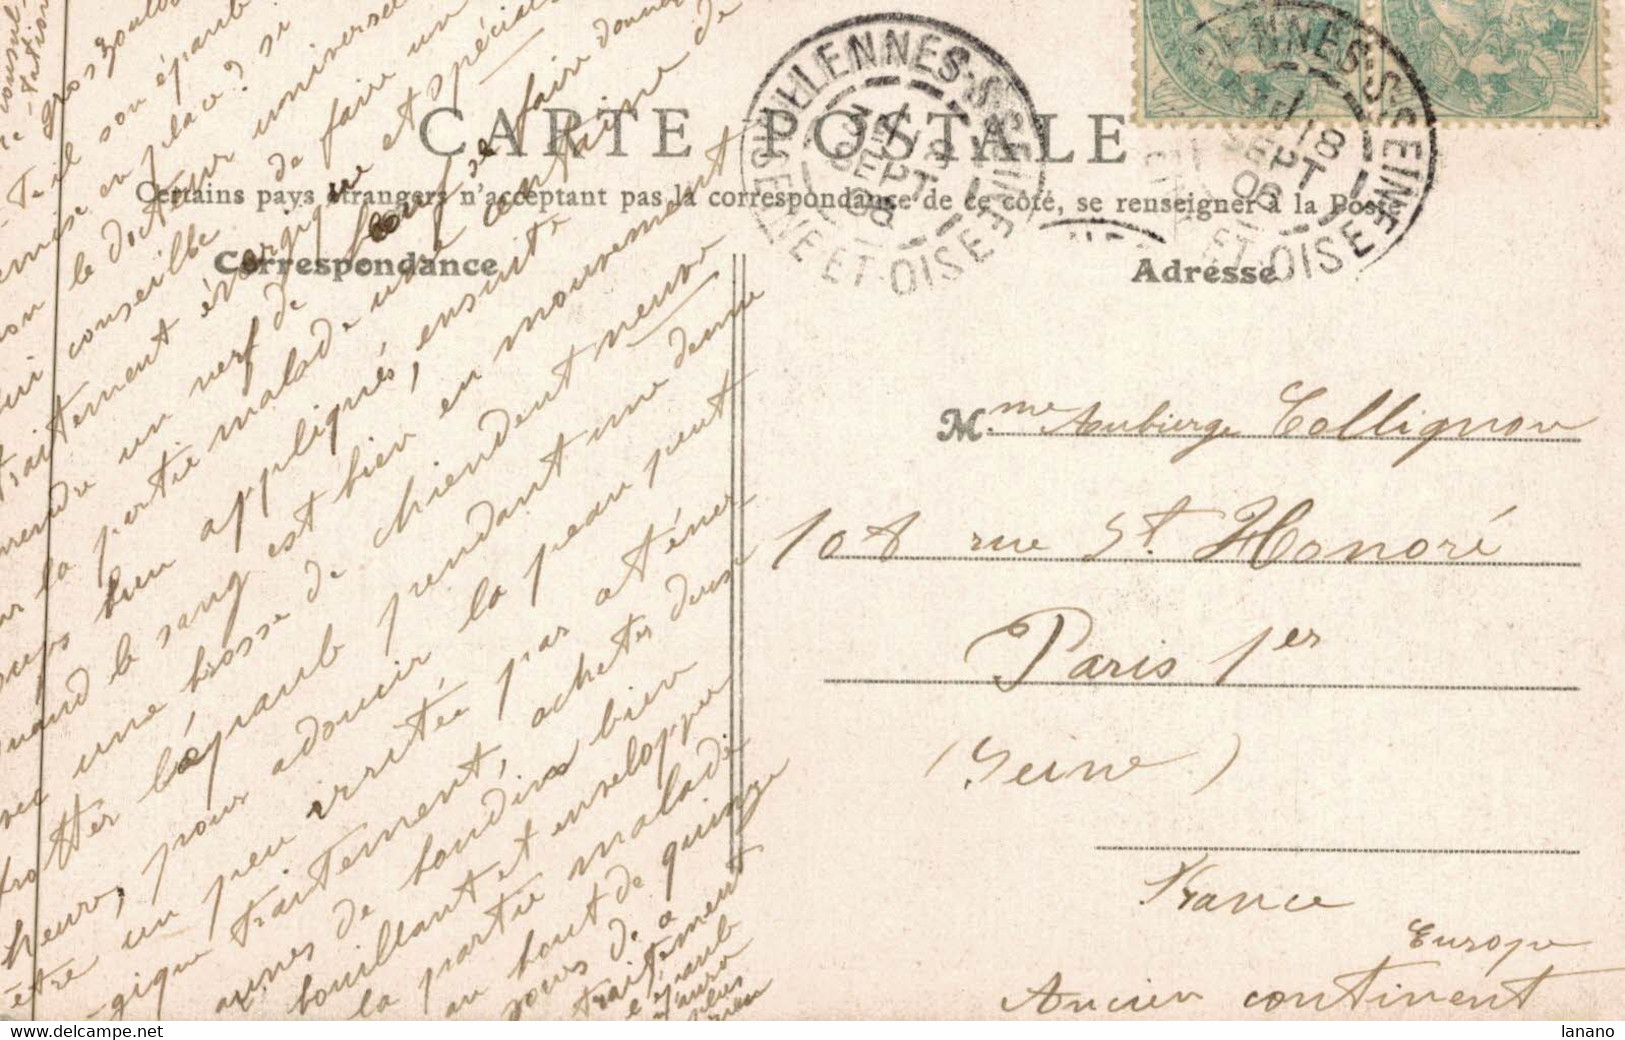 CARTE POSTALE
Certains pays étrangers n'acceptant pas la correspondance de ce côté, se renseigner à la Poste
Correspondance
Adresse
VILLENNES-S-SEINE
SEINE-ET-OISE
SEPT
08
VILLENNES-S-SEINE
18
SEPT
08
ET-OISE
Mme Aubierge Collignon
108 rue St. Honoré
Paris 1er
(Seine)
France
Europe
Ancien continent
consul-
-tation
gros
-t-il son épaule
remise en place? si
non le docteur universel
lui conseille de faire un
traitement énergique et spécial
prendre un nerf de bœuf se faire donner
sur la partie malade une centaine de
coups bien appliqués, ensuite
quand le sang est bien en mouvement
avec une brosse de chiendent neuve
frotter l'épaule pendant une demi
heure, pour adoucir la peau peut
être un peu irritée par
-gique traitement, acheter deux
aunes de boudins bien
bouillant et envelopper
la partie malade
au bout de quinze
jours de ce
traitement
l'épaule
n'aura
plus
rien
lanano